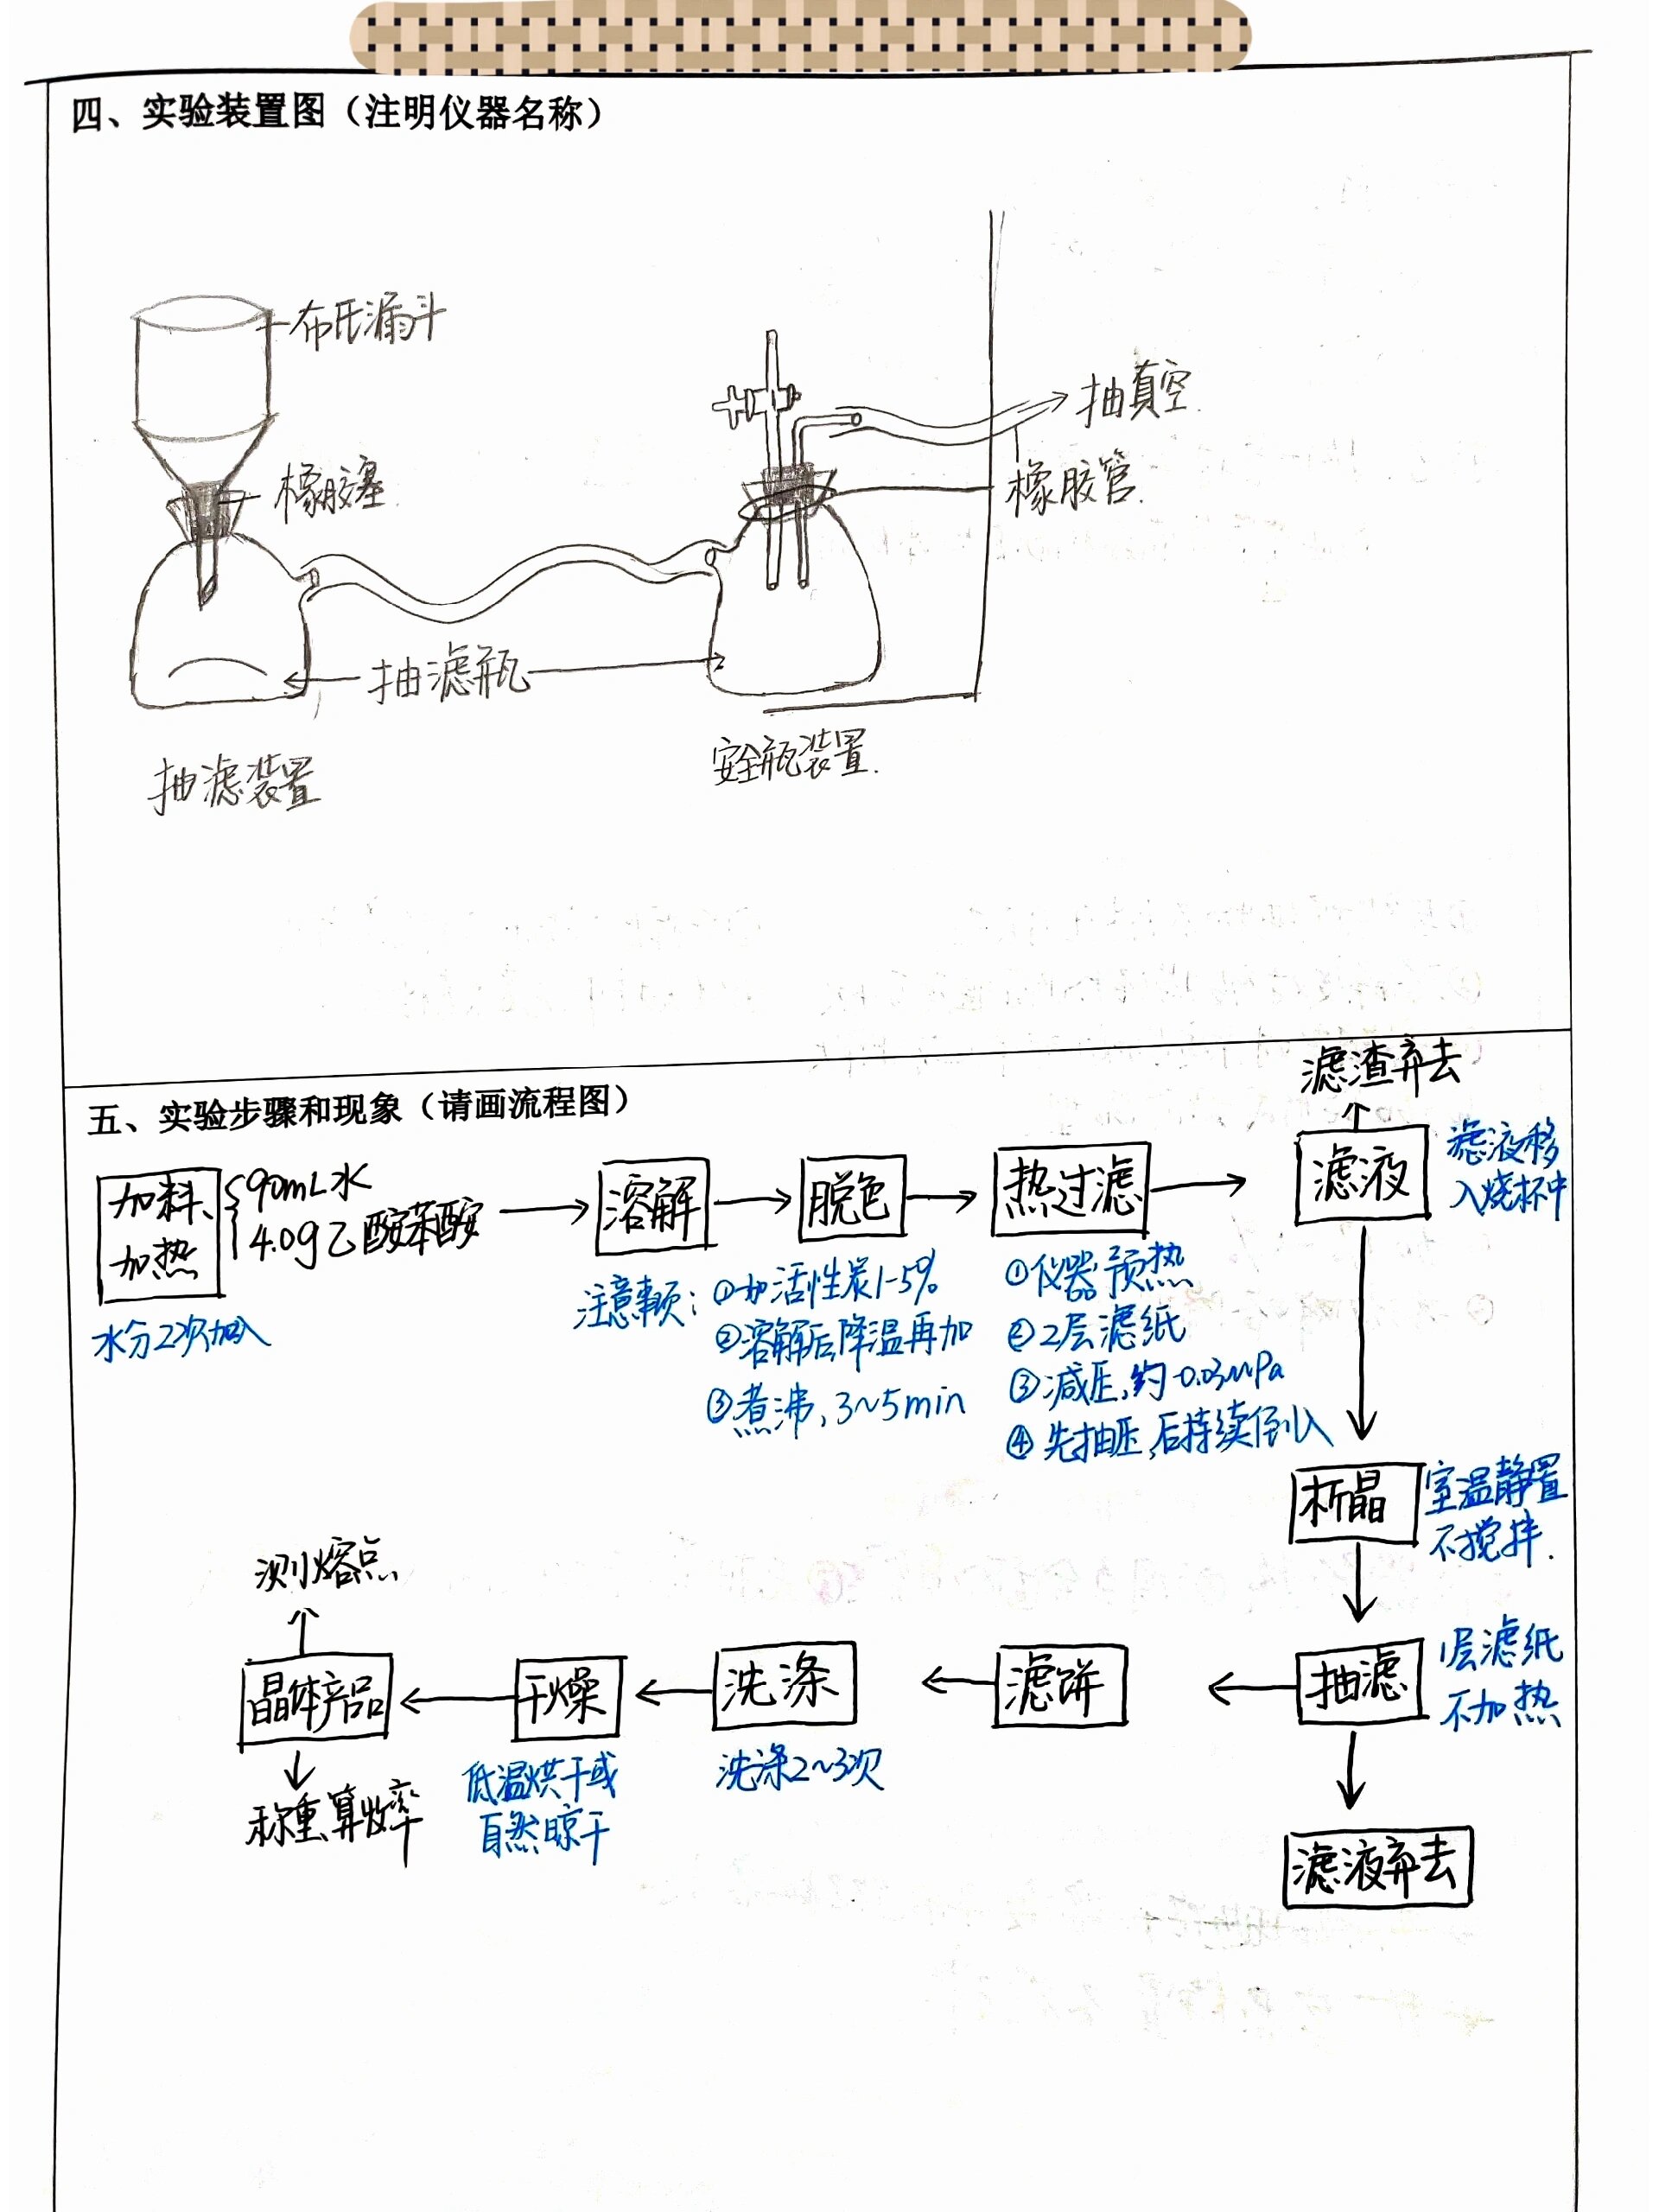 四、实验装置图（注明仪器名称）
布氏漏斗
橡胶塞
抽真空
橡胶管
抽滤瓶
抽滤装置
安全瓶装置
五、实验步骤和现象（请画流程图）
加料、
加热
90mL水
4.09g乙酰苯胺
水分2次加入
溶解
脱色
注意事项：①加活性炭1-5%
②溶解后降温再加
③煮沸，3~5min
热过滤
①仪器预热
②2层滤纸
③减压，约-0.03MPa
④先抽压，后持续倒入
滤渣弃去
滤液
滤液移
入烧杯中
析晶
室温静置
不搅拌.
抽滤
1层滤纸
不加热
滤液弃去
滤饼
洗涤
洗涤2~3次
干燥
低温烘干或
自然晾干
晶体产品
测熔点
称重算收率